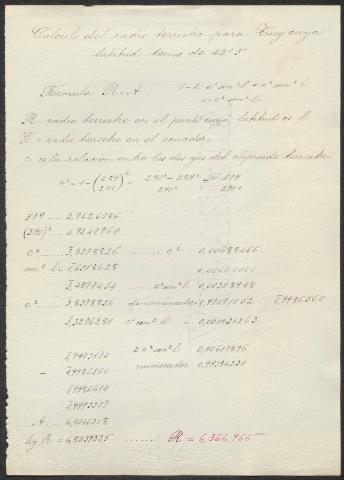 Cálculo del radio terrestre para Tuy cuya
latitud tomo de 42° 3'
Formula R = A
1-2 e² sen² l + e⁴ sen² l
1-e² sen² l
R = radio terrestre en el punto cuya latitud es l
= radio terrestre en el ecuador
e es la relacion entre los dos ejes del elipsoide terrestre
e² = 1 - (289/290)² = 290² - 289² / 290² = 579 / 290²
579 .... 2,7626786
(290)² .... 4,9247960
e² .... 3,8378826 ........ e² 0,00688466
sen² l .. 1,6518628 1,0000000
3,4897454 ...... e² sen² l 0,00308948
e² ...... 3,8378826 denominador 0,99691052 1,9986560
5,3276280 e⁴ sen² l 0,000021263
1,9973174 2 e² sen² l 0,00617896
- 1,9986560 numerador 0,99384230
1,9986614
1,9993307
A .. 6,8046018
log R = 6,8039325 ........ R = 6,366966 m